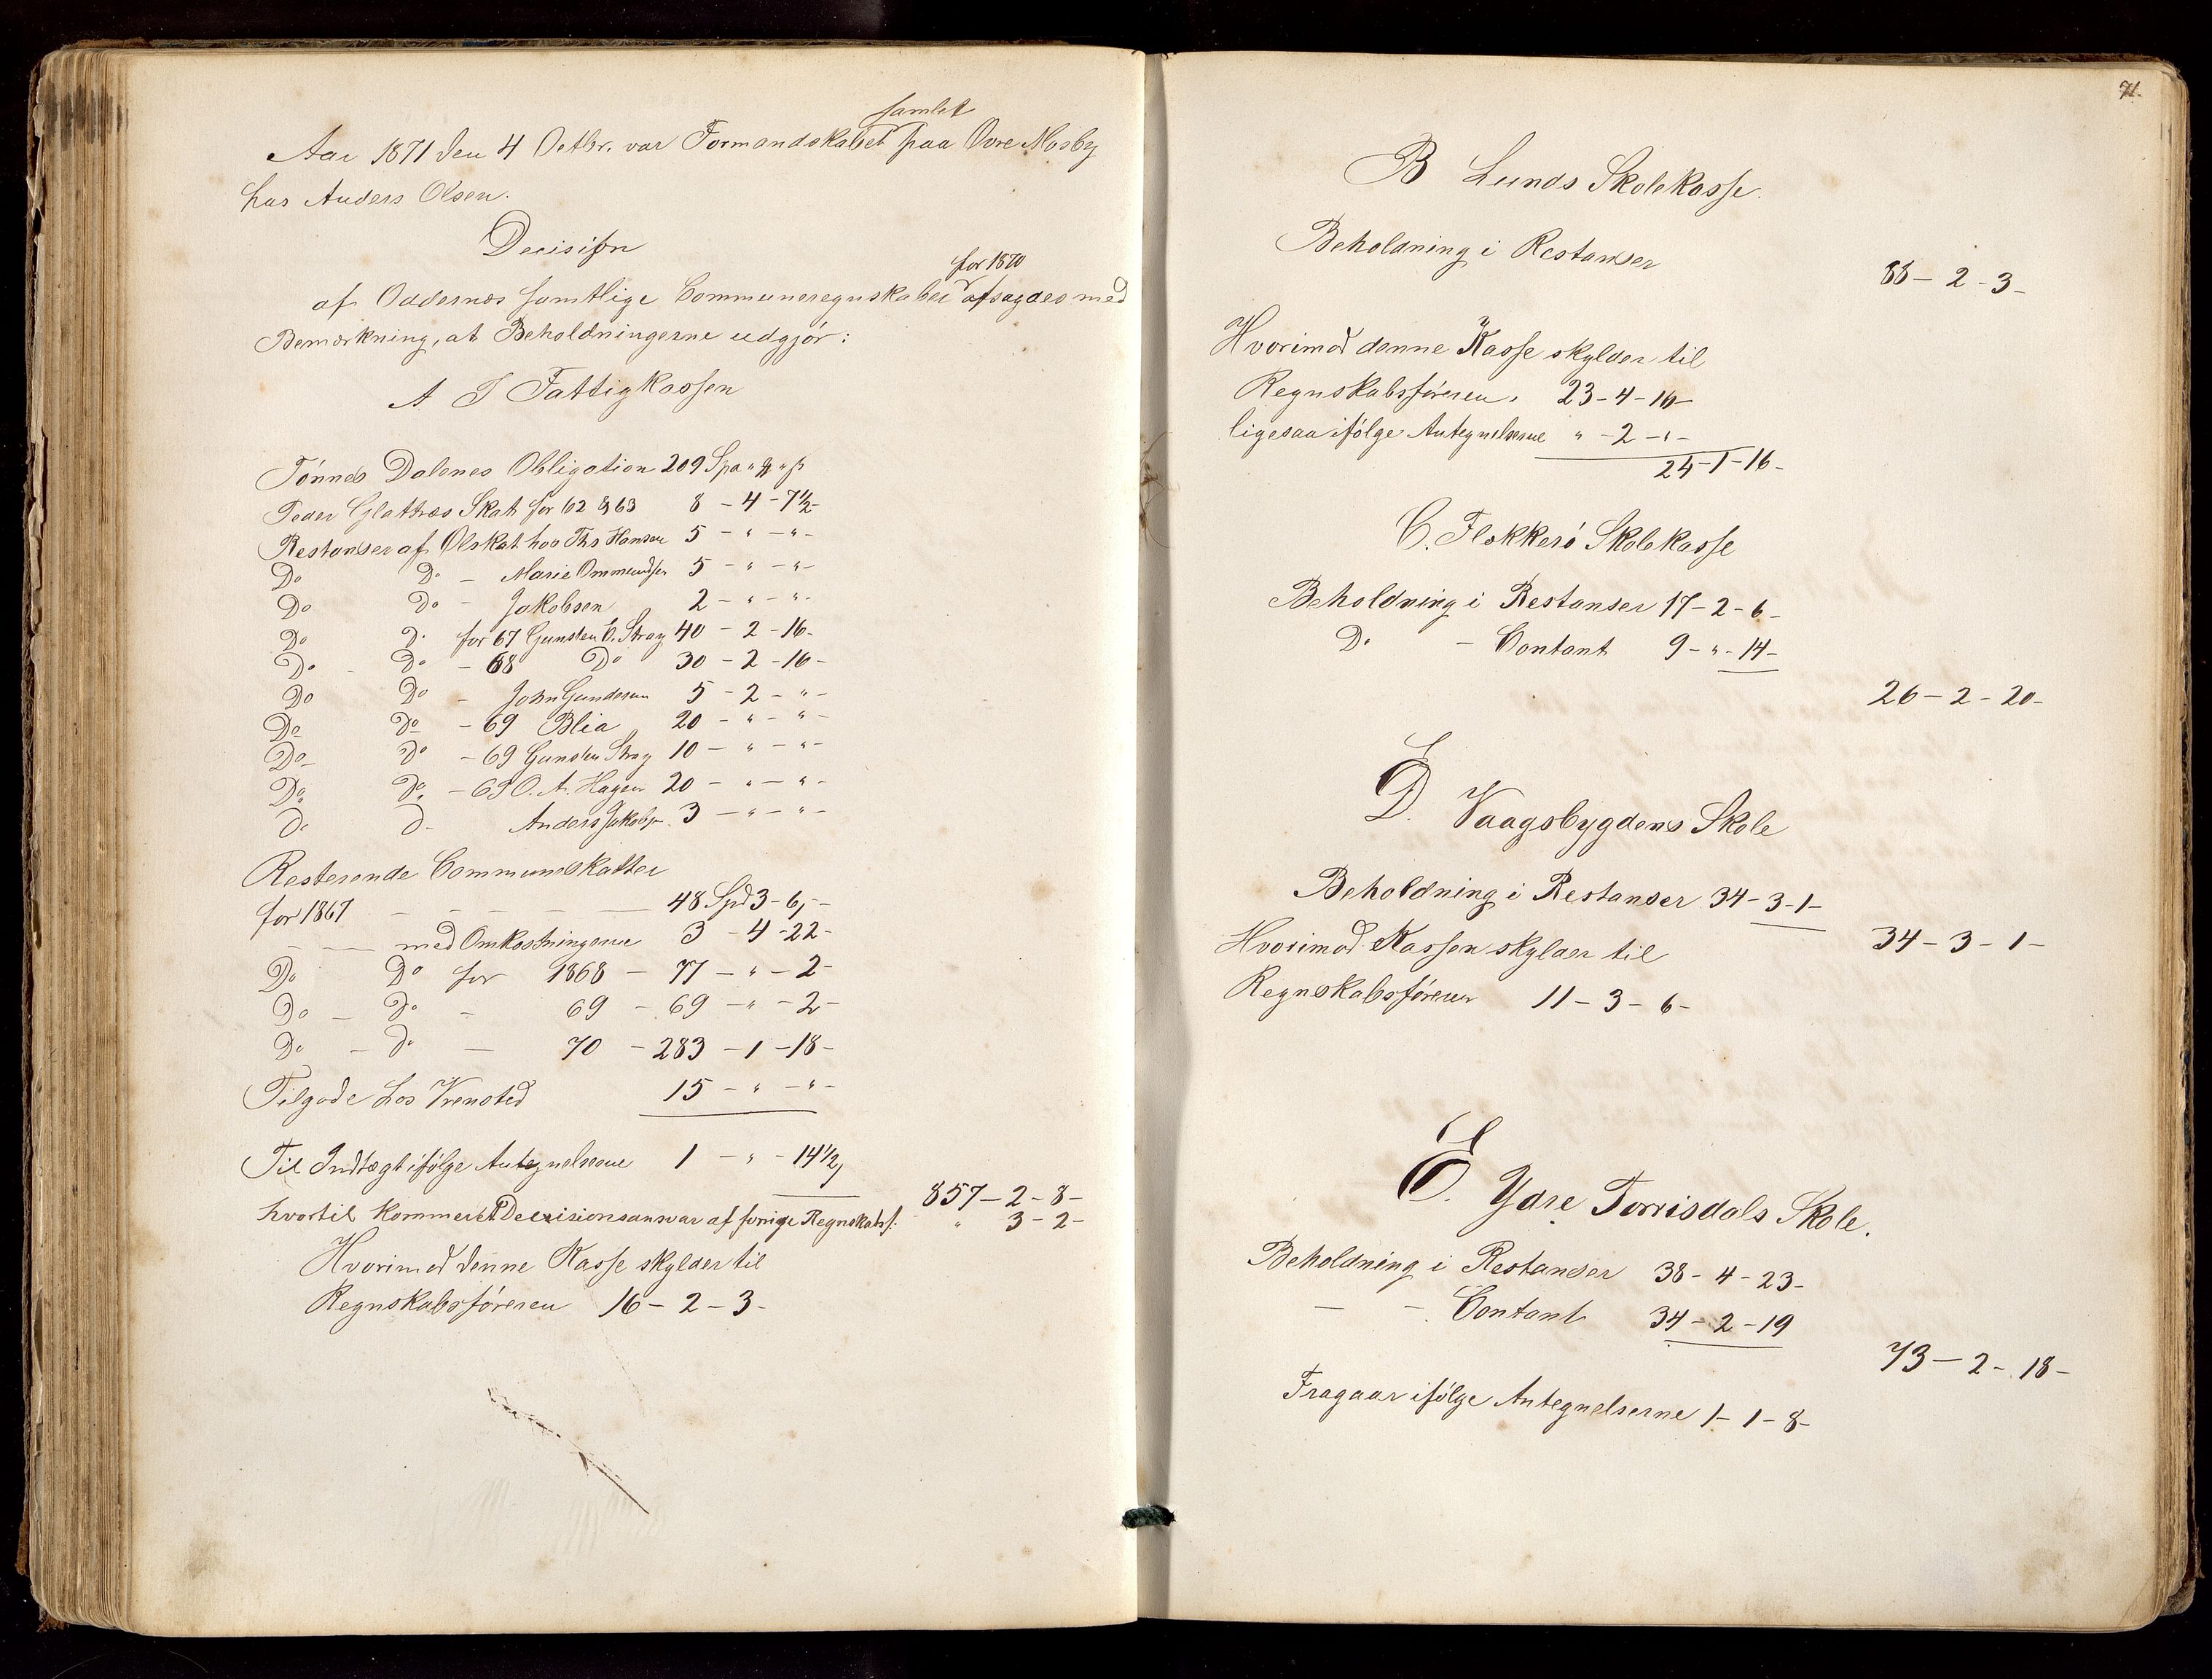 samlet
Aar 1871 den 4 Octbr. var Formandskabet paa Övre Mosby
hos Anders Olsen.
Decision
for 1870
af Oddernes samtlige Communeregnskaber afsagdes med
Bemærkning, at Beholdningerne udgjör:
A I Fattigkassen
Tönnes Dalenes Obligation 209 Spd " " "
Peder Glattres Skat for 62 & 63 8 - 4 - 7½ -
Restanser af Ölskat hos Ths Hansen 5 - " - " -
Do Do - Marie Ommundsen 5 - " - " -
Do Do - Jakobsen 2 - " - " -
Do Do for 67 Gunsten C. Stray 40 - 2 - 16 -
Do - Do - 68 Do 30 - 2 - 16 -
Do Do - John Gundersen 5 - 2 - " -
Do Do - 69 Blia 20 - " - " -
Do Do - 69 Gunsten Stray 10 - " - " -
Do Do - 69 O. A. Hagen 20 - " - " -
Do Do Anders Jakobs. 3 - " - " -
Resterende Communeskatter
for 1867 - - - - - 48 Spd 3 - 6, -
- - med Omkostningerne 3 - 4 - 22 -
Do Do for 1868 - 77 - " - 2 -
Do - Do - 69 - 69 - " - 2 -
Do - Do - 70 - 283 - 1 - 18 -
Tilgode hos Vrensted 15 - " - " -
Til Indtægt ifölge Antegnelserne 1 - " - 14½,
857 - 2 - 8 -
hvortil kommer et Decisionsansvar af forrige Regnskabsf. " 3 - 2 -
Hvorimod denne Kasse skylder til
Regnskabsföreren 16 - 2 - 3 -
71.
B Lunds Skolekasse.
Beholdning i Restanser
88 - 2 - 3 -
Hvorimod denne Kasse skylder til
Regnskabsföreren, 23 - 4 - 16 -
ligesaa ifölge Antegnelserne " - 2 - " -
24 - 1 - 16 -
C. Flekkerö Skolekasse
Beholdning i Restanser 17 - 2 - 6 -
Do - Contant 9 - " - 14 -
26 - 2 - 20 -
D. Vaagsbygdens Skole
Beholdning i Restanser 34 - 3 - 1 -
34 - 3 - 1 -
Hvorimod Kassen skylder til
Regnskabsföreren 11 - 3 - 6 -
E. Ydre Torrisdals Skole.
Beholdning i Restanser 38 - 4 - 23 -
- - Contant 34 - 2 - 19
73 - 2 - 18 -
Fragaar ifölge Antegnelserne 1 - 1 - 8 -